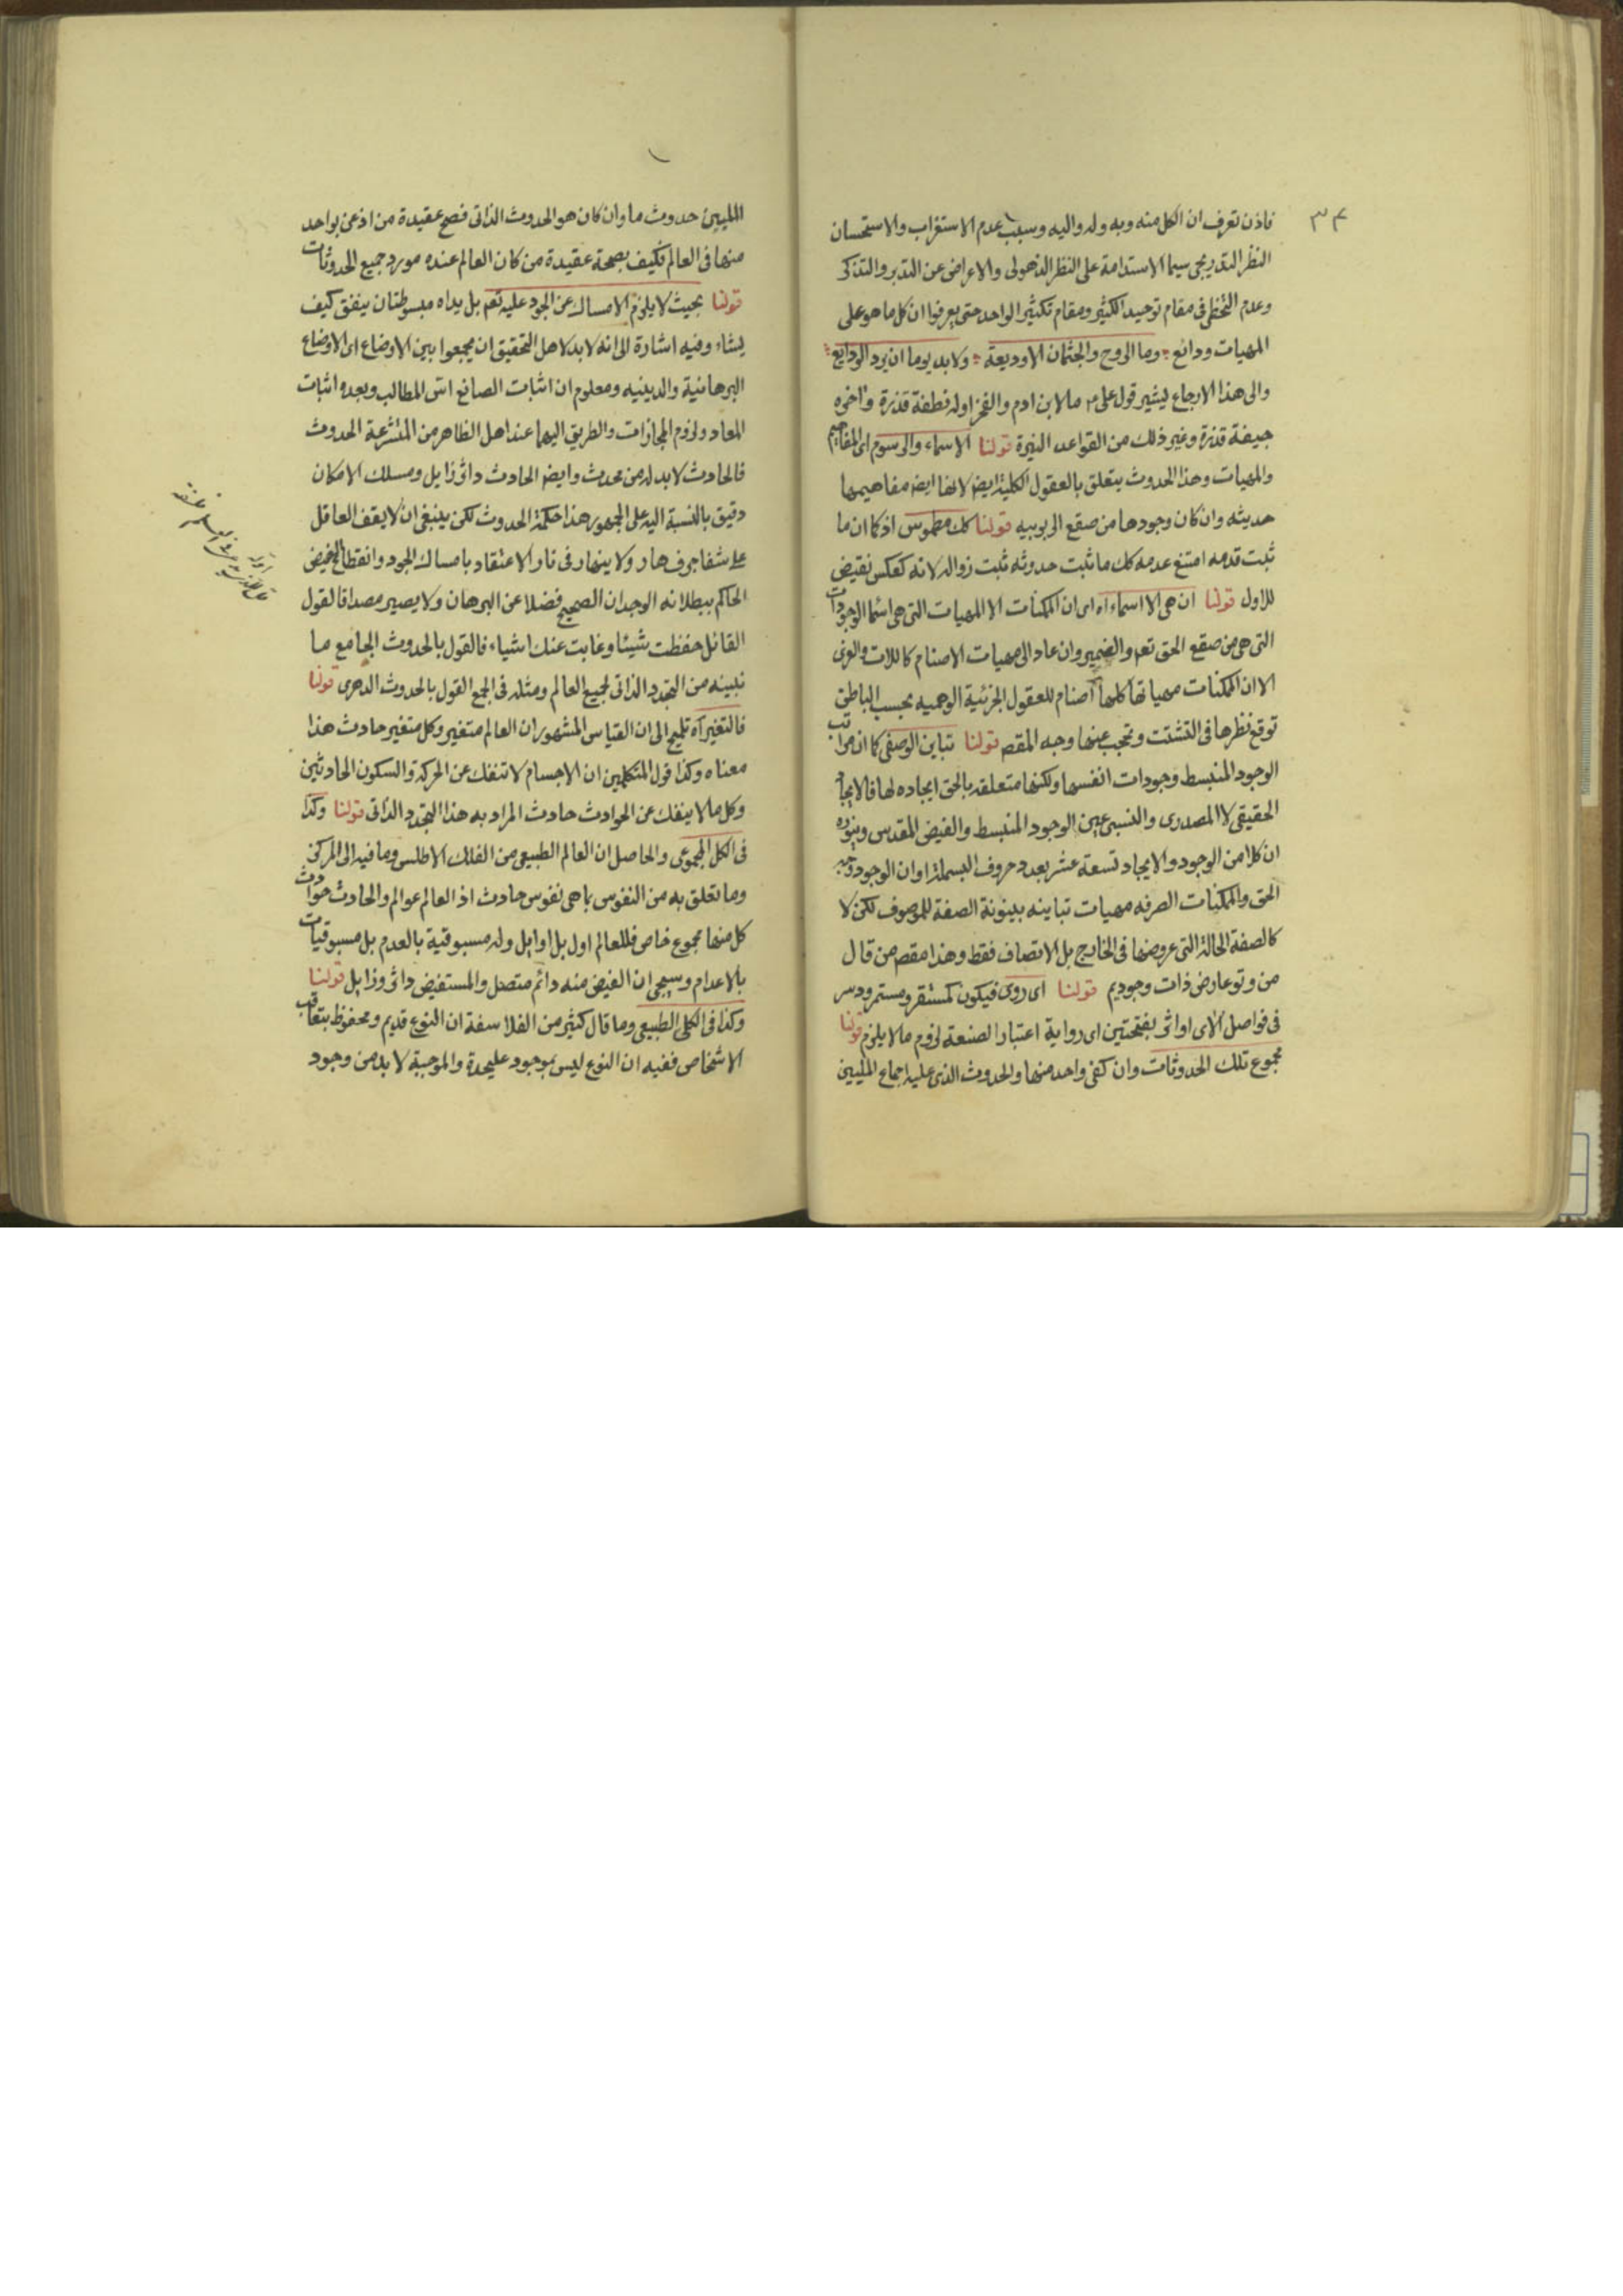 ٣٤
فاذن تعرف ان الكل منه وبه وله واليه وسبب عدم الاستغراب والاستحسان
النظر التدريجى سيما الاستدامة على النظر الذهولى والاعراض عن التدبر والتذكر
وعدم التخطى فى مقام توحيد الكثير ومقام تكثير الواحد حتى يعرفوا ان كل ما هو على
المهيات ودائع وما الروح والجثمان الا وديعة ولابد يوما ان يرد الودايع
والى هذا الارجاع يشير قول على ٢ ما لابن ادم والفخر اوله نطفة قذرة واخره
جيفة قذرة وغير ذلك من القواعد النيرة قولنا الاسماء والرسوم اى المفاهيم
والمهيات وهذا الحدوث يتعلق بالعقول الكلية ايض لانها ايض مفاهيمها
حديثه وان كان وجودها من صقع الربوبيه قولنا كك مطموس اذ كما ان ما
ثبت قدمه امتنع عدمه كك ما ثبت حدوثه ثبت زواله لانه كعكس نقيض
للاول قولنا ان هى الا اسماء اه اى ان الممكنات الا المهيات التى هى اسما الوجودات
التى هى من صقع الحق تعم والضمير وان عاد الى مهيات الاصنام كاللات والعزى
الا ان الممكنات مهياتها كلها اصنام للعقول الجزئية الوهميه بحسب الباطن
توقع نظرها فى التشتت وتحجب عنها وجه المقصم قولنا تباين الوصفى كما ان مراتب
الوجود المنبسط وجودات انفسها ولكنها متعلقه بالحق ايجاده لها فالايجاد
الحقيقى لا المصدرى والنسبى عين الوجود المنبسط والفيض المقدس وينوره
ان كلا من الوجود والايجاد تسعة عشر بعدد حروف البسملة اوان الوجود وجه
الحق والممكنات الصرفه مهيات تباينه بينونة الصفة للموصوف لكن لا
كالصفة الحالة التى عروضها فى الخارج بل الاتصاف فقط وهذا مقصم من قال
من وتو عارض ذات وجوديم قولنا اى روى فيكون كمستقر ومستمر ودسر
فى فواصل الاى او اثر بفتحتين اى رواية اعتبار الصنعة لزوم ما لا يلزم قولنا
مجموع تلك الحدوثات وان كفى واحد منها والحدوث الذى عليه اجماع المليين
المليين حدوث ما وان كان هو الحدوث الذاتى فصح عقيدة من اذعن بواحد
منها فى العالم فكيف بصحة عقيدة من كان العالم عنده مورد جميع الحدوثات
قولنا بحيث لا يلزم الامساك عن الجود عليه تعم بل يداه مبسوطتان ينفق كيف
يشاء وفيه اشارة الى انه لابد لاهل التحقيق ان يجمعوا بين الاوضاع اى الاوضاع
البرهانية والدينيه ومعلوم ان اثبات الصانع اسّ المطالب وبعده اثبات
المعاد ولزوم المجازات والطريق اليهما عند اهل الظاهر من المتشرعة الحدوث
فالحادث لابد له من محدث وايض الحادث داثر زايل ومسلك الامكان
دقيق بالنسبة اليه على الجمهور هذا حكمة الحدوث لكن ينبغى ان لا يقف العاقل
على شفا جرف هار ولا ينهار فى نار الاعتقاد بامساك الجود وانقطاع الفيض
الحاكم ببطلانه الوجدان الصحيح فضلا عن البرهان ولا يصير مصداقا لقول
القائل حفظت شيئا وغابت عنك اشياء فالقول بالحدوث الجامع ما
نبينه من التجدد الذاتى لجميع العالم ومثله فى الجمع القول بالحدوث الدهرى قولنا
فالتغير اه تلميح الى ان القياس المشهور ان العالم متغير وكل متغير حادث هذا
معناه وكذا قول المتكلمين ان الاجسام لا تنفك عن الحركة والسكون الحادثين
وكل ما لا ينفك عن الحوادث حادث المراد به هذا التجدد الذاتى قولنا وكذا
فى الكل المجموعى والحاصل ان العالم الطبيعى من الفلك الاطلس وما فيه الى المركز
وما تعلق به من النفوس بما هى نفوس حادث اذ العالم عوالم والحادث حوادث
كل منها مجموع خاص فللعالم اول بل اوايل وله مسبوقية بالعدم بل مسبوقيات
بالاعدام وسيجى ان الفيض منه دائم متصل والمستفيض داثر وزايل قولنا
وكذا فى الكلى الطبيعى وما قال كثير من الفلاسفة ان النوع قديم ومحفوظ بتعاقب
الاشخاص ففيه ان النوع ليس بموجود عليحدة والموجبة لابد من وجود